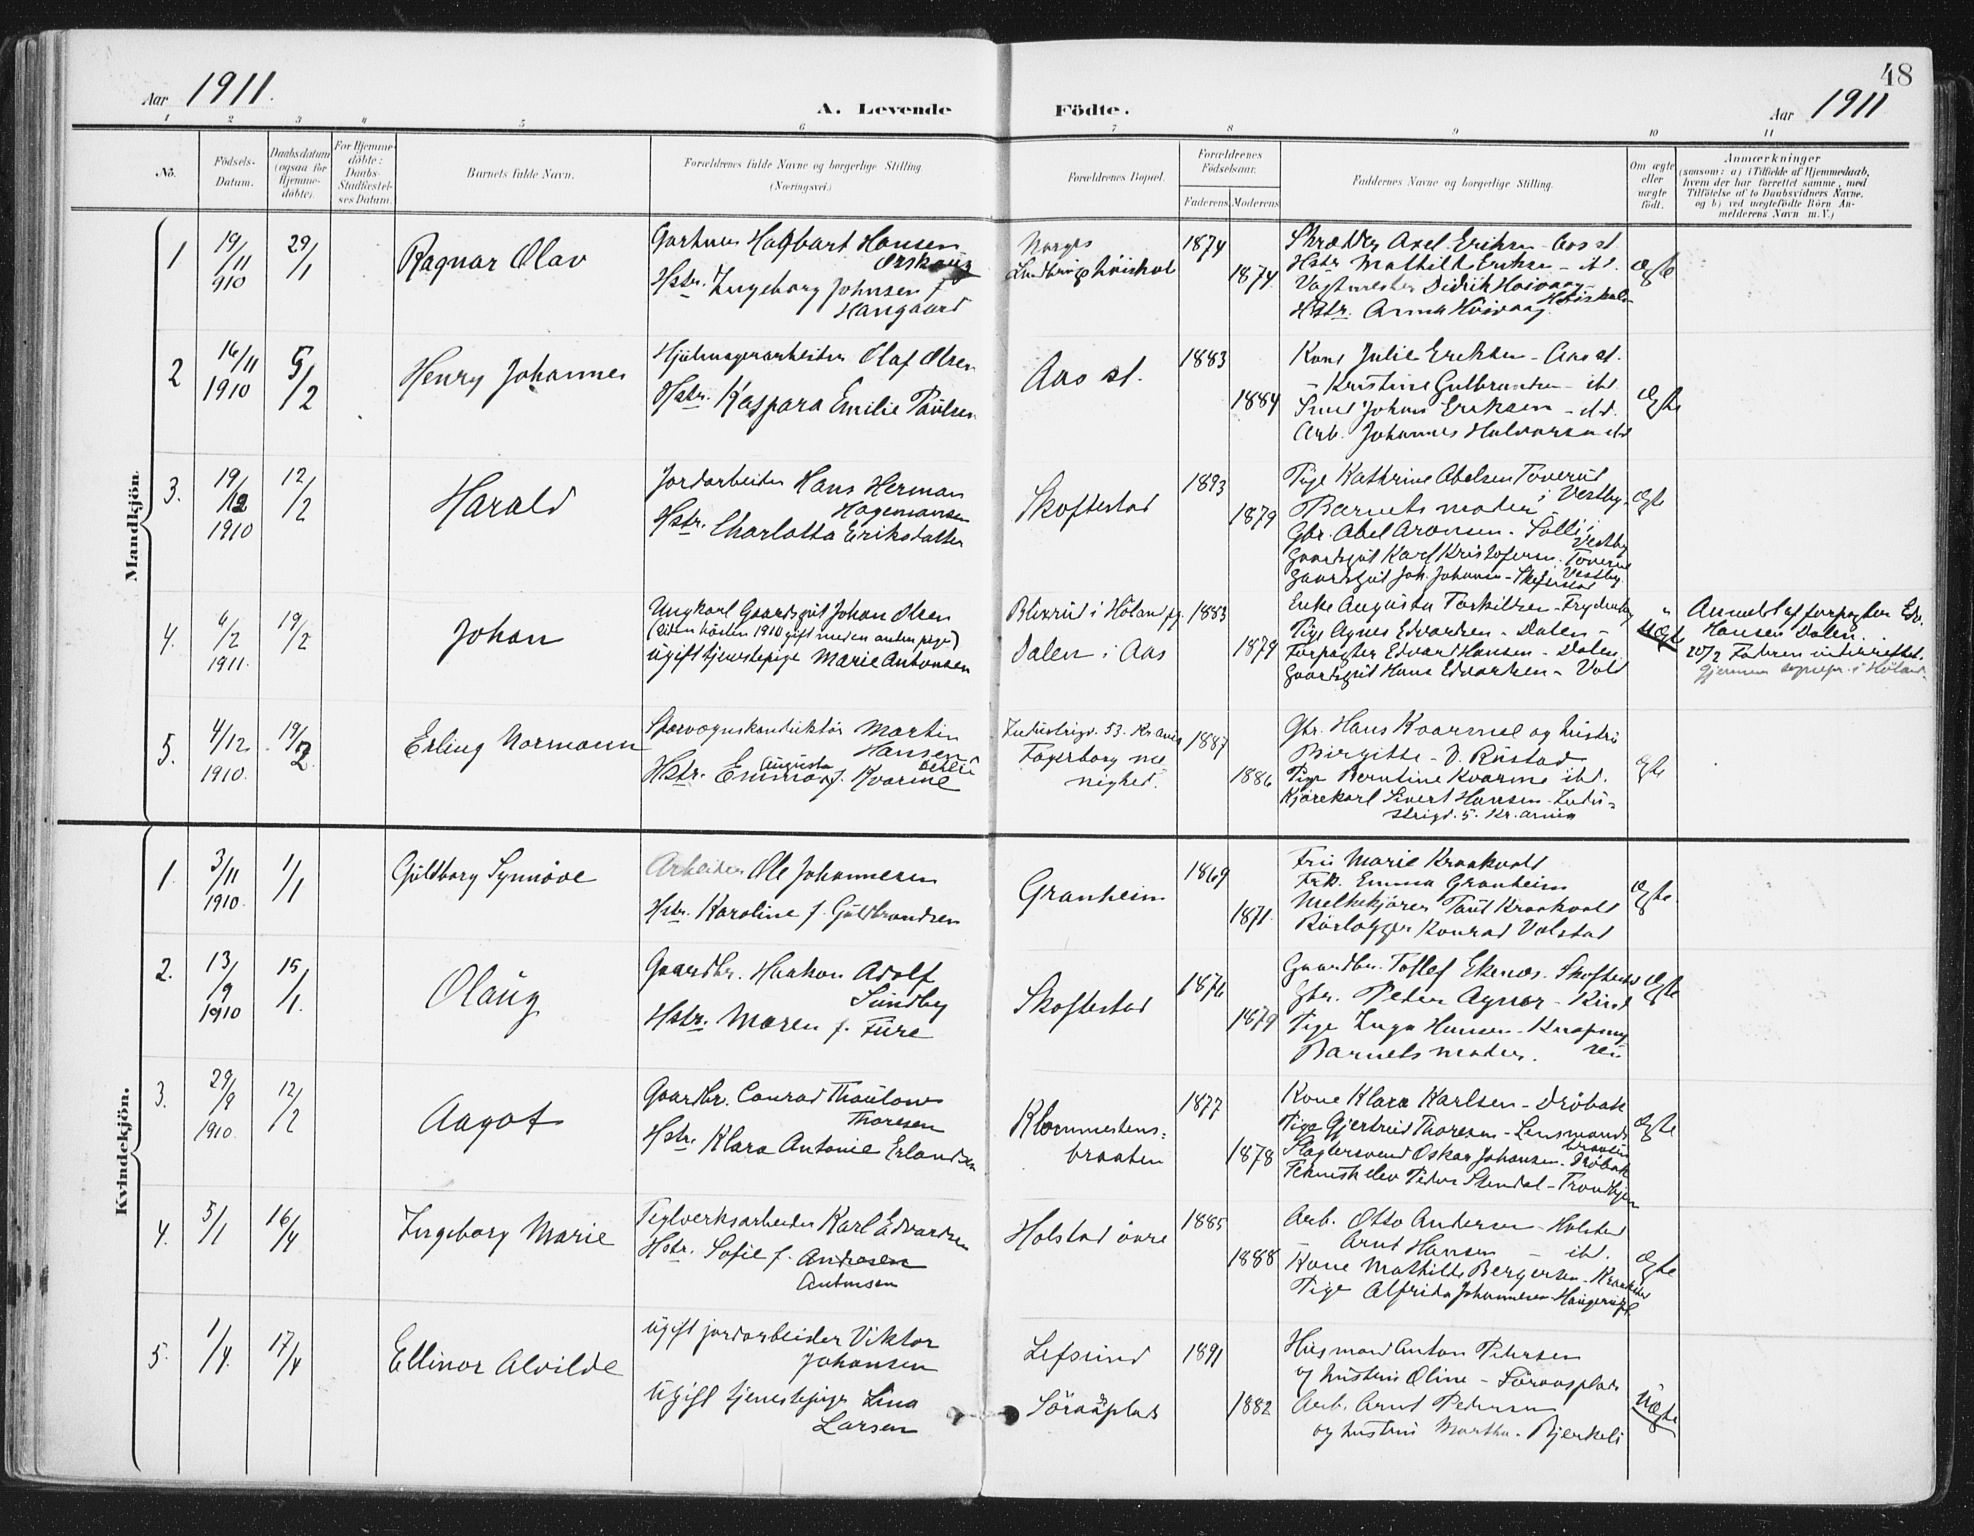 48
Aar 1911.
A. Levende Födte.
Aar 1911
1 2 3 4 5 6 7 8 9 10 11
No.
Födsels-
Datum.
Daabsdatum
(ogsaa for
Hjemme-
döbte).
For Hjemme-
döbte:
Daabs-
Stadfæstel-
ses Datum.
Barnets fulde Navn.
Forældrenes fulde Navne og borgerlige Stilling.
(Næringsvei.)
Forældrenes Bopæl.
Forældrenes
Födselsaar.
Faderens. Moderens.
Faddernes Navne og borgerlige Stilling.
Om ægte
eller
uægte
födt.
Anmærkninger
(saasom: a) i Tilfælde af Hjemmedaab,
hvem der har forrettet samme, med
Tilföielse af to Daabsvidners Navne,
og b) ved uægtefödte Börn An-
melderens Navn m. V.)
Mandkjön.
1 19/11 910 29/1
Ragnar Olav
Hagbart Hansen
Hstr. Ingeborg Johnsen f.
Haugaard
Norges
Landbrugshöiskole
1874
1874
Axel Eriksen - Aas st.
Hstr. Mathilde Eriksen - ibd.
Vagtmester Didrik Hoivaag
Höiskolen
Hstr. Anna Höivaag
Ægte
2 16/11 1910 5/2
Henry Johannes
Hjulmagerarbeider Olaf Olsen
Hstr. Kaspara Emilie Paulsen
Aas st.
1883
1884
Kone Julie Eriksen - Aas st.
- Kristine Gulbrandsen - ibd
Smed Johns Eriksen - ibd.
Arb. Johannes Halvorsen ibd
Ægte
3. 19/12 1910 12/2
Harald
Jordarbeider Hans Herman
Hagemansen
Hstr. Charlotta Eriksdatter
Skoftestad
1893
1879
Pige Kathrine Abelsen Toverud
i Vestby.
Barnets moder
Gbr. Abel Aronsen - Solli i
Vestby
Gaardsgut Karl Kristofersen. Toverud
Vestby.
Gaardsgut Joh. Johansen - Skofterstad
Ægte
4. 6/2 1911. 19/2
Johan
Ungkarl Gaardsgut Johan Olsen
(siden hösten 1910 gift med en anden pige)
Ugift tjenestepige Marie Antonsen
Blixrud i Höland pg.
Dalen i Aas
1883
1879
Enke Augusta Torkildsen - Frydenberg
Pige Agnes Edvardsen - Dalen -
Forpagter Edvard Hansen - Dalen
Gaardsgut Hans Edvardsen - Vold
Uægte
Anmeldt af forpagter Edv.
Hansen Dalen.
20/2 Faderen underrettet.
gjennem sognepr. i Höland
5. 4/12. 1910. 19/2
Erling Normann
Sporvognskonduktör Martin
Hansen
Hstr. Emma Augusta f. Kvarme
Industrigd. 53. Kr.ania
Fagerborg me-
nighed.
1887
1886
Gbr. Hans Kvarme og hustru
Birgitte - V. Rustad
Pige Berntine Kvarme ibd.
Kjörekarl Sivert Hansen - Indu-
strigd. 5. Kr.ania
Ægte
Kvindekjön.
1. 3/11 1910. 1/1
Guldborg Synnöve
Arbeider Ole Johannesen
Hstr. Karoline f. Guldbrandsen
Granheim
1869
1871.
Fru Marie Kraakvold
Frk. Emma Granheim
Melkekjörer Paul Kraakvold
Rörlægger Konrad Volstad
Ægte
2. 13/9 1910 15/1.
Olaug
Gaardbr. Haakon Adolf
Sundby
Hstr. Maren f. Fure
Skoftestad
1876
1879
Gaardbr. Tollef Ekenæs - Skoftestad
Gbr. Peder Aynor - Kind
Pige Inga Hansen -
Barnets moder.
Ægte
3. 29/9 1910. 12/2
Aagot
Gaardbr. Conrad Thaulow
Thoresen
Hstr. Klara Antonie Erlandsen
Klommestens-
braaten
1877
1878
Kone Klara Karlsen - Dröbak
Pige Gjertrud Thoresen - Lensmands
braaten
Slagtersvend Oskar Johansen - Dröbak
Teknisk elev Peder Stendal - Trondhjem
Ægte
4. 5/1 16/4
Ingeborg Marie
Teglverksarbeider Karl Edvardsen
Hstr. Sofie f. Andresen
Antonsen
Holstad övre
1885
1888
Arb. Otto Andersen - Holstad
Arnt Hansen - ibd.
Kone Mathilde Bergersen -
Pige Alfrida Johannesen
Ægte
5. 1/4. 17/4
Ellinor Alvilde
Ugift jordarbeider Viktor
Johansen
Ugift tjenestepige Lina
Larsen
Lefsrud
Söraasplads
1891
1882
Husmand Anton Pedersen
og hustru Oline - Söraasplads
Arb. Arnt Pedersen
og hustru Martha - Bjerkeli
Uægte